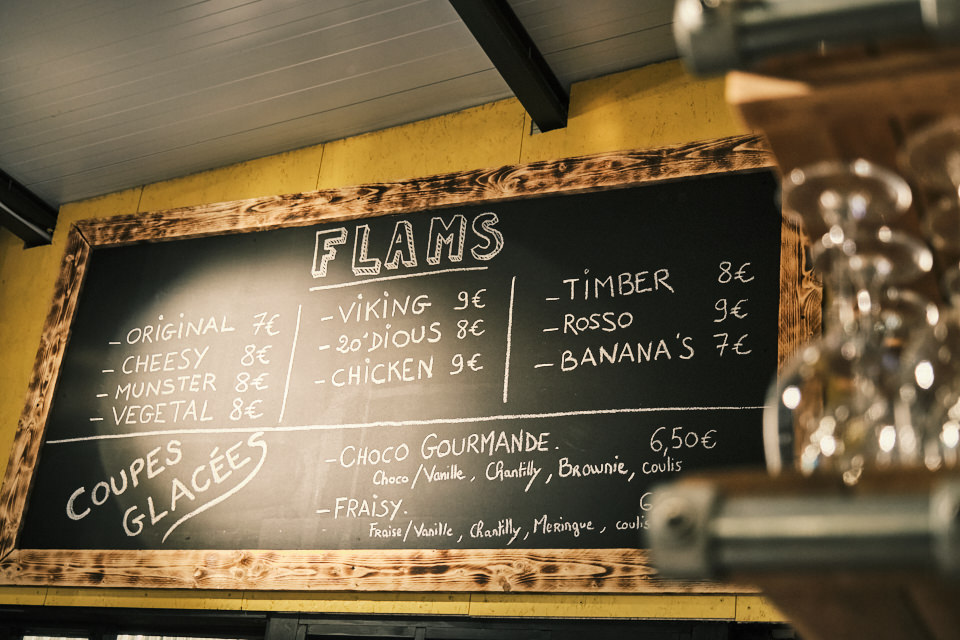 FLAMS
-ORIGINAL 7€
-CHEESY 8€
-MUNSTER 8€
-VEGETAL 8€
-VIKING 9€
-20'DIOUS 8€
-CHICKEN 9€
-TIMBER 8€
-ROSSO 9€
-BANANA'S 7€
COUPES
GLACÉES
-CHOCO GOURMANDE. 6,50€
Choco/Vanille, Chantilly, Brownie, coulis
-FRAISY.
Fraise/Vanille, Chantilly, Meringue, coulis